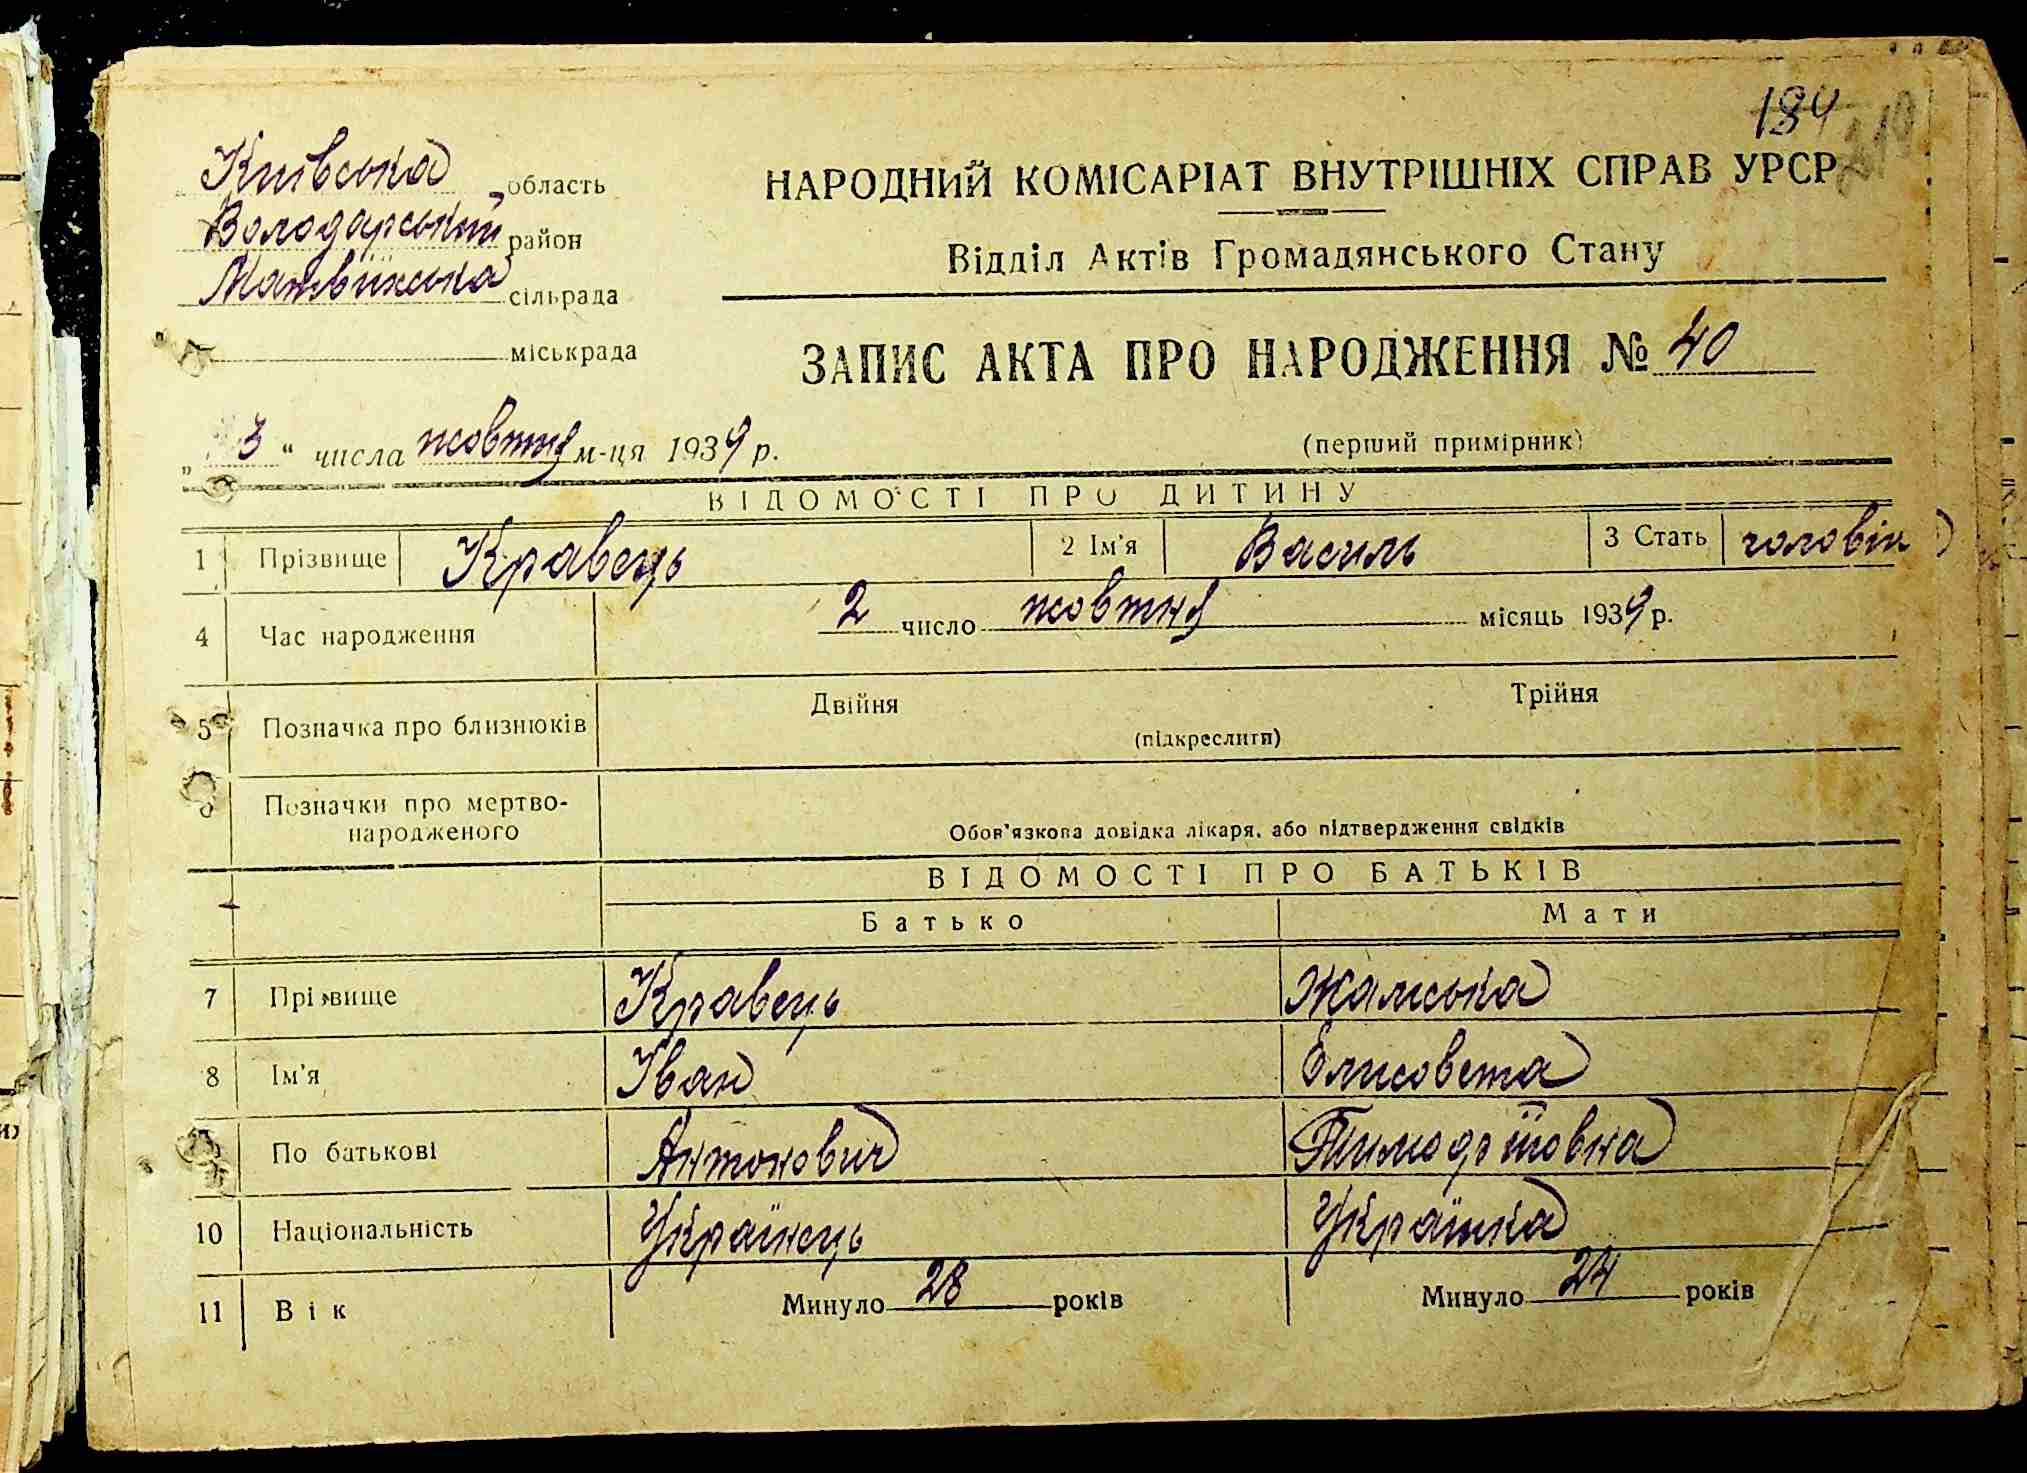 184
Київська область
Володарський район
Матвіїхська сільрада
міськрада
НАРОДНИЙ КОМІСАРІАТ ВНУТРІШНІХ СПРАВ УРСР
Відділ Актів Громадянського Стану
ЗАПИС АКТА ПРО НАРОДЖЕННЯ № 40
„ 3 “ числа жовтня м-ця 1939 р.
(перший примірник)
ВІДОМОСТІ ПРО ДИТИНУ
1 Прізвище Кравець 2 Ім'я Василь 3 Стать чоловіч
4 Час народження 2 число жовтня місяць 1939 р.
5 Позначка про близнюків Двійня Трійня
(підкреслити)
6 Позначки про мертво-
народженого
Обов'язкова довідка лікаря, або підтвердження свідків
ВІДОМОСТІ ПРО БАТЬКІВ
Батько Мати
7 Прізвище Кравець Жамська
8 Ім'я Іван Єлисовета
По батькові Антонович Тимофіївна
10 Національність Українець Українка
11 Вік Минуло 28 років Минуло 24 років